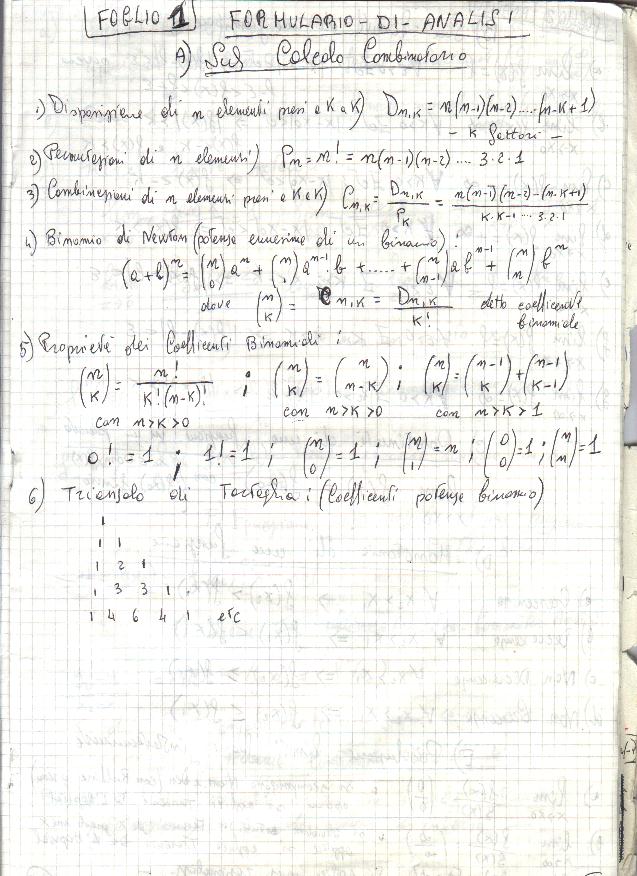 FOGLIO 1 FORMULARIO-DI-ANALISI
A) Sul Calcolo Combinatorio
1) Disposizione di n elementi presi a K a K) Dn,K = n(n-1)(n-2).....(n-K+1)
- K fattori -
2) Permutazioni di n elementi) Pn = n! = n(n-1)(n-2) .... 3·2·1
3) Combinazioni di n elementi presi a K a K) Cn,K = Dn,K / PK = n(n-1)(n-2)-(n-K+1) / K·K-1 ... 3·2·1
4) Binomio di Newton (potenza ennesima di un binomio) :
(a+b)^n = (n 0) a^n + (n 1) a^n-1 · b + ..... + (n n-1) a b^n-1 + (n n) b^n
dove (n K) = Cn,K = Dn,K / K! detto coefficiente
binomiale
5) Proprietà dei Coefficienti Binomiali :
(n K) = n! / K!(n-K)! ; (n K) = (n n-K) ; (n K) = (n-1 K) + (n-1 K-1)
con n>K>0 con n>K>0 con n>K>1
0! = 1 ; 1! = 1 ; (n 0) = 1 ; (n 1) = n ; (0 0) = 1 ; (n n) = 1
6) Triangolo di Tartaglia : (Coefficienti potenze binomio)
1
1 1
1 2 1
1 3 3 1
1 4 6 4 1 etc